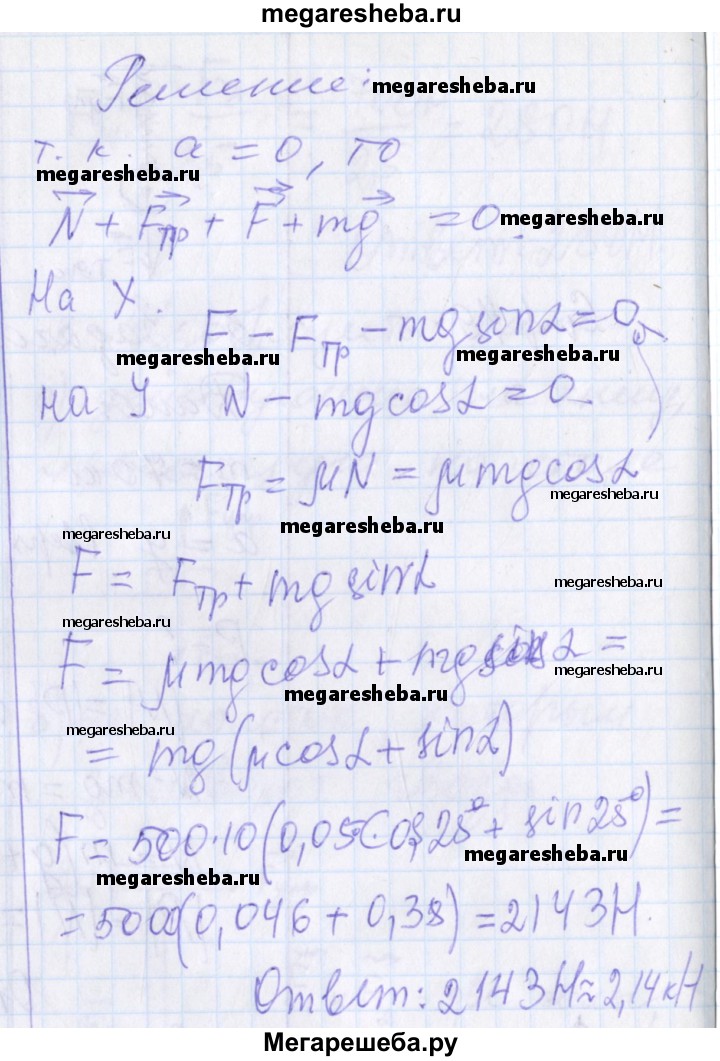 megaresheba.ru
Решение: megaresheba.ru
т. к. a = 0, то
megaresheba.ru
N + Fтр + F + mg = 0. megaresheba.ru
На X.
F − Fтр − mg sinα = 0,
megaresheba.ru megaresheba.ru
на У N − mg cosα = 0.
Fтр = μN = μmg cosα
megaresheba.ru
megaresheba.ru megaresheba.ru
F = Fтр + mg sinα
megaresheba.ru
megaresheba.ru
F = μmg cosα + mg sinα =
megaresheba.ru
megaresheba.ru
megaresheba.ru
= mg(μcosα + sinα)
F = 500·10(0,05Cos25° + sin25°) =
megaresheba.ru
megaresheba.ru
= 5000(0,046 + 0,38) = 2143Н.
Ответ: 2143Н ≈ 2,14кН
Мегарешеба.ру